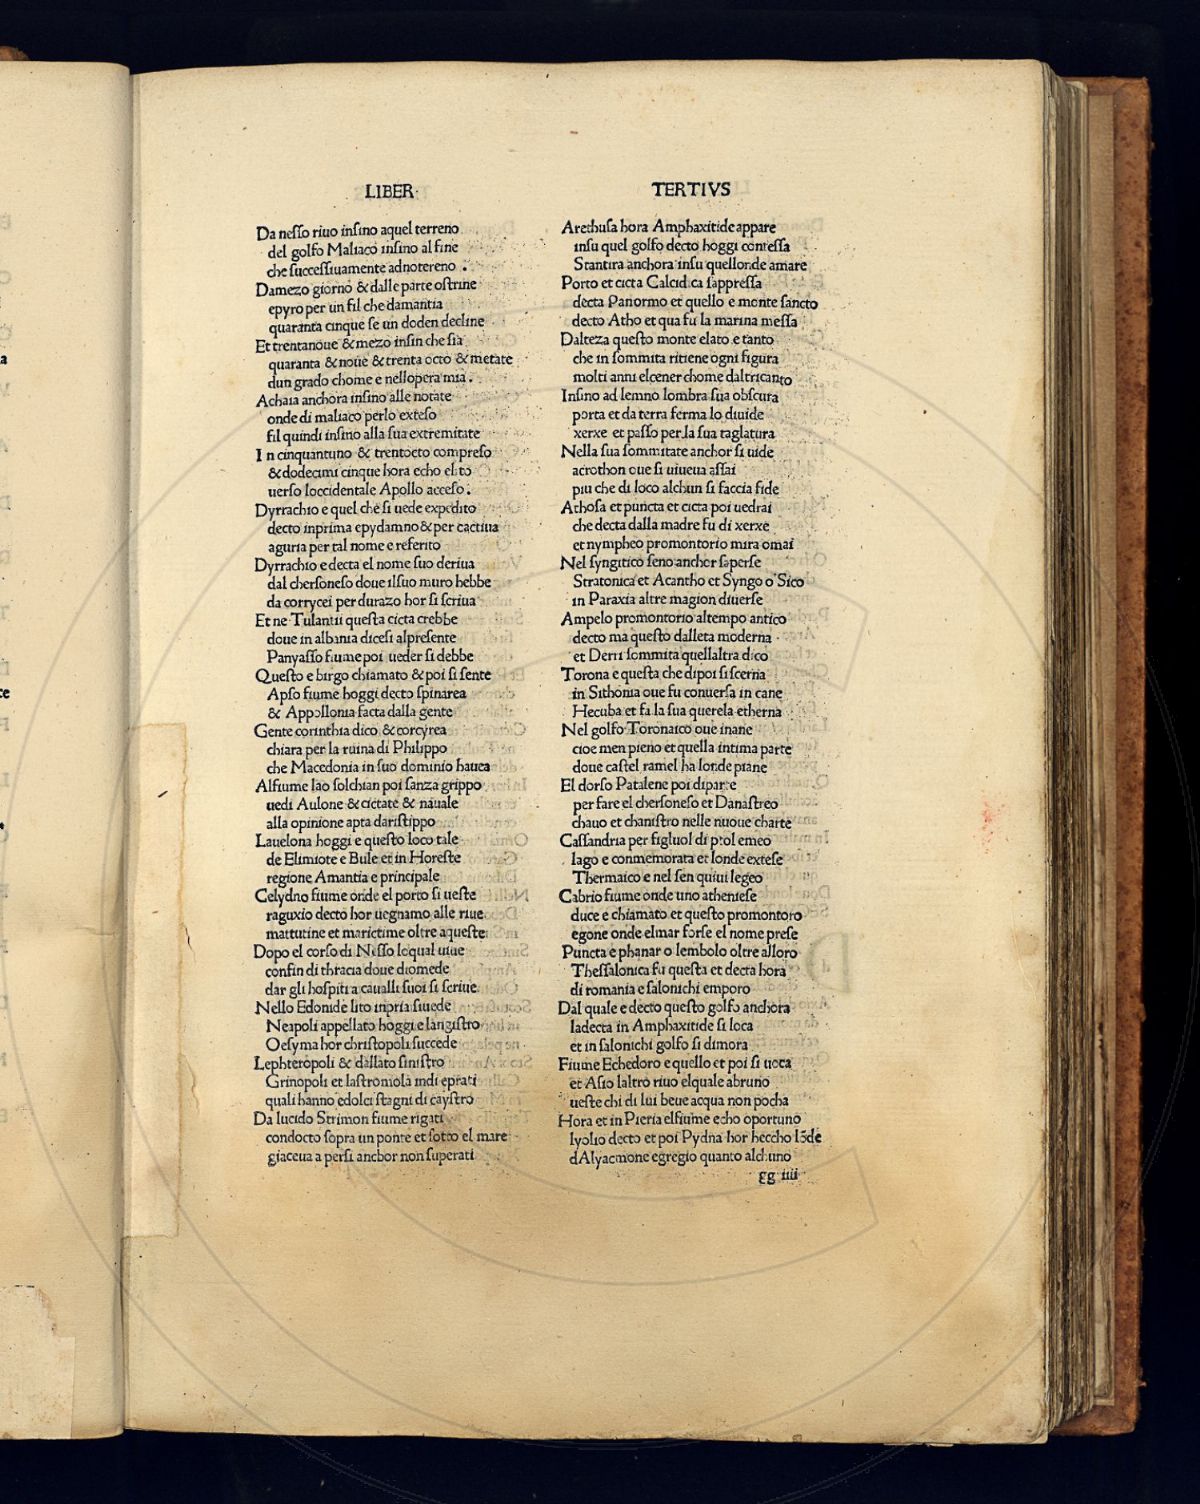 LIBER TERTIVS
Da nesso riuo insino aquel terreno
del golfo Maliaco insino al fine
che successiuamente adnotereno .
Damezo giorno & dalle parte ostrine
epyro per un fil che damantia
quaranta cinque se un doden decline
Et trentanoue & mezo insin che sia
quaranta & noue & trenta octo & metate
dun grado chome e nellopera mia .
Achaia anchora insino alle notate
onde di maliaco perlo exteso
fil quindi insino alla sua extremitate
In cinquantuno & trentocto compreso
& dodecimi cinque hora echo elito
uerso loccidentale Apollo acceso .
Dyrrachio e quel che si uede expedito
decto inprima epydamno & per cactiua
aguria per tal nome e referito
Dyrrachio e decta el nome suo deriua
dal chersoneso doue ilsuo muro hebbe
da corrycei per durazo hor si scriua
Et ne Tulantii questa cicta crebbe
doue in albania dicesi alpresente
Panyasso fiume poi ueder si debbe
Questo e birgo chiamato & poi si sente
Apso fiume hoggi decto spinarea
& Appollonia facta dalla gente
Gente corinthia dico & corcyrea
chiara per la ruina di Philippo
che Macedonia in suo dominio hauea
Alfiume lao solchian poi sanza grippo
uedi Aulone & cictate & nauale
alla opinione apta daristippo
Lauelona hoggi e questo loco tale
de Elimiote e Bule et in Horeste
regione Amantia e principale
Celydno fiume onde el porto si ueste
raguxio decto hor uegnamo alle riue
mattutine et marictime oltre aqueste
Dopo el corso di Nesso loqual uiue
confin di thracia doue diomede
dar gli hospiti a caualli suoi si scriue
Nello Edonide lito inpria siuede
Neapoli appellato hoggi e langistro
Oesyma hor christopoli succede
Lephteropoli & dallato sinistro
Grinopoli et lastromola indi eprati
quali hanno edolci stagni di caystro
Da lucido Strimon fiume rigati
condocto sopra un ponte et sotto el mare
giaceua a persi anchor non superati
Arethusa hora Amphaxitide appare
insu quel golfo decto hoggi contessa
Stantira anchora insu quellonde amare
Porto et cicta Calcidica sappressa
decta Panormo et quello e monte sancto
decto Atho et qua fu la marina messa
Dalteza questo monte elato e tanto
che in sommita ritiene ogni figura
molti anni elcener chome daltricanto
Insino ad lemno lombra sua obscura
porta et da terra ferma lo diuide
xerxe et passo per la sua taglatura
Nella sua sommitate anchor si uide
acrothon oue si uiueua assai
piu che di loco alchun si faccia fide
Athosa et puncta et cicta poi uedrai
che decta dalla madre fu di xerxe
et nympheo promontorio mira omai
Nel syngitico seno anchor saperse
Stratonica et Acantho et Syngo o Sico
in Paraxia altre magion diuerse
Ampelo promontorio altempo antico
decto ma questo dalleta moderna
et Derri sommita quellaltra dico
Torona e questa che dipoi si scerna
in Sithonia oue fu conuersa in cane
Hecuba et fa la sua querela etherna
Nel golfo Toronaico oue inane
cioe men pieno et quella intima parte
doue castel ramel ha londe piane
El dorso Patalene poi diparte
per fare el chersoneso et Danastreo
chauo et chanistro nelle nuoue charte
Cassandria per figluol di ptolemeo
lago e conmemorata et londe extese
Thermaico e nel sen quiui legeo
Cabrio fiume onde uno atheniese
duce e chiamato et questo promontoro
egone onde elmar forse el nome prese
Puncta e phanar o lembolo oltre alloro
Thessalonica fu questa et decta hora
di romania e salonichi emporo
Dal quale e decto questo golfo anchora
ladecta in Amphaxitide si loca
et in salonichi golfo si dimora
Fiume Echedoro e quello et poi si uoca
et Asio laltro riuo elquale abruno
ueste chi di lui beue acqua non pocha
Hora et in Pieria elfiume echo oportuno
lyolio decto et poi Pydna hor heccho lõde
dAlyacmone egregio quanto alchuno
gg iiii